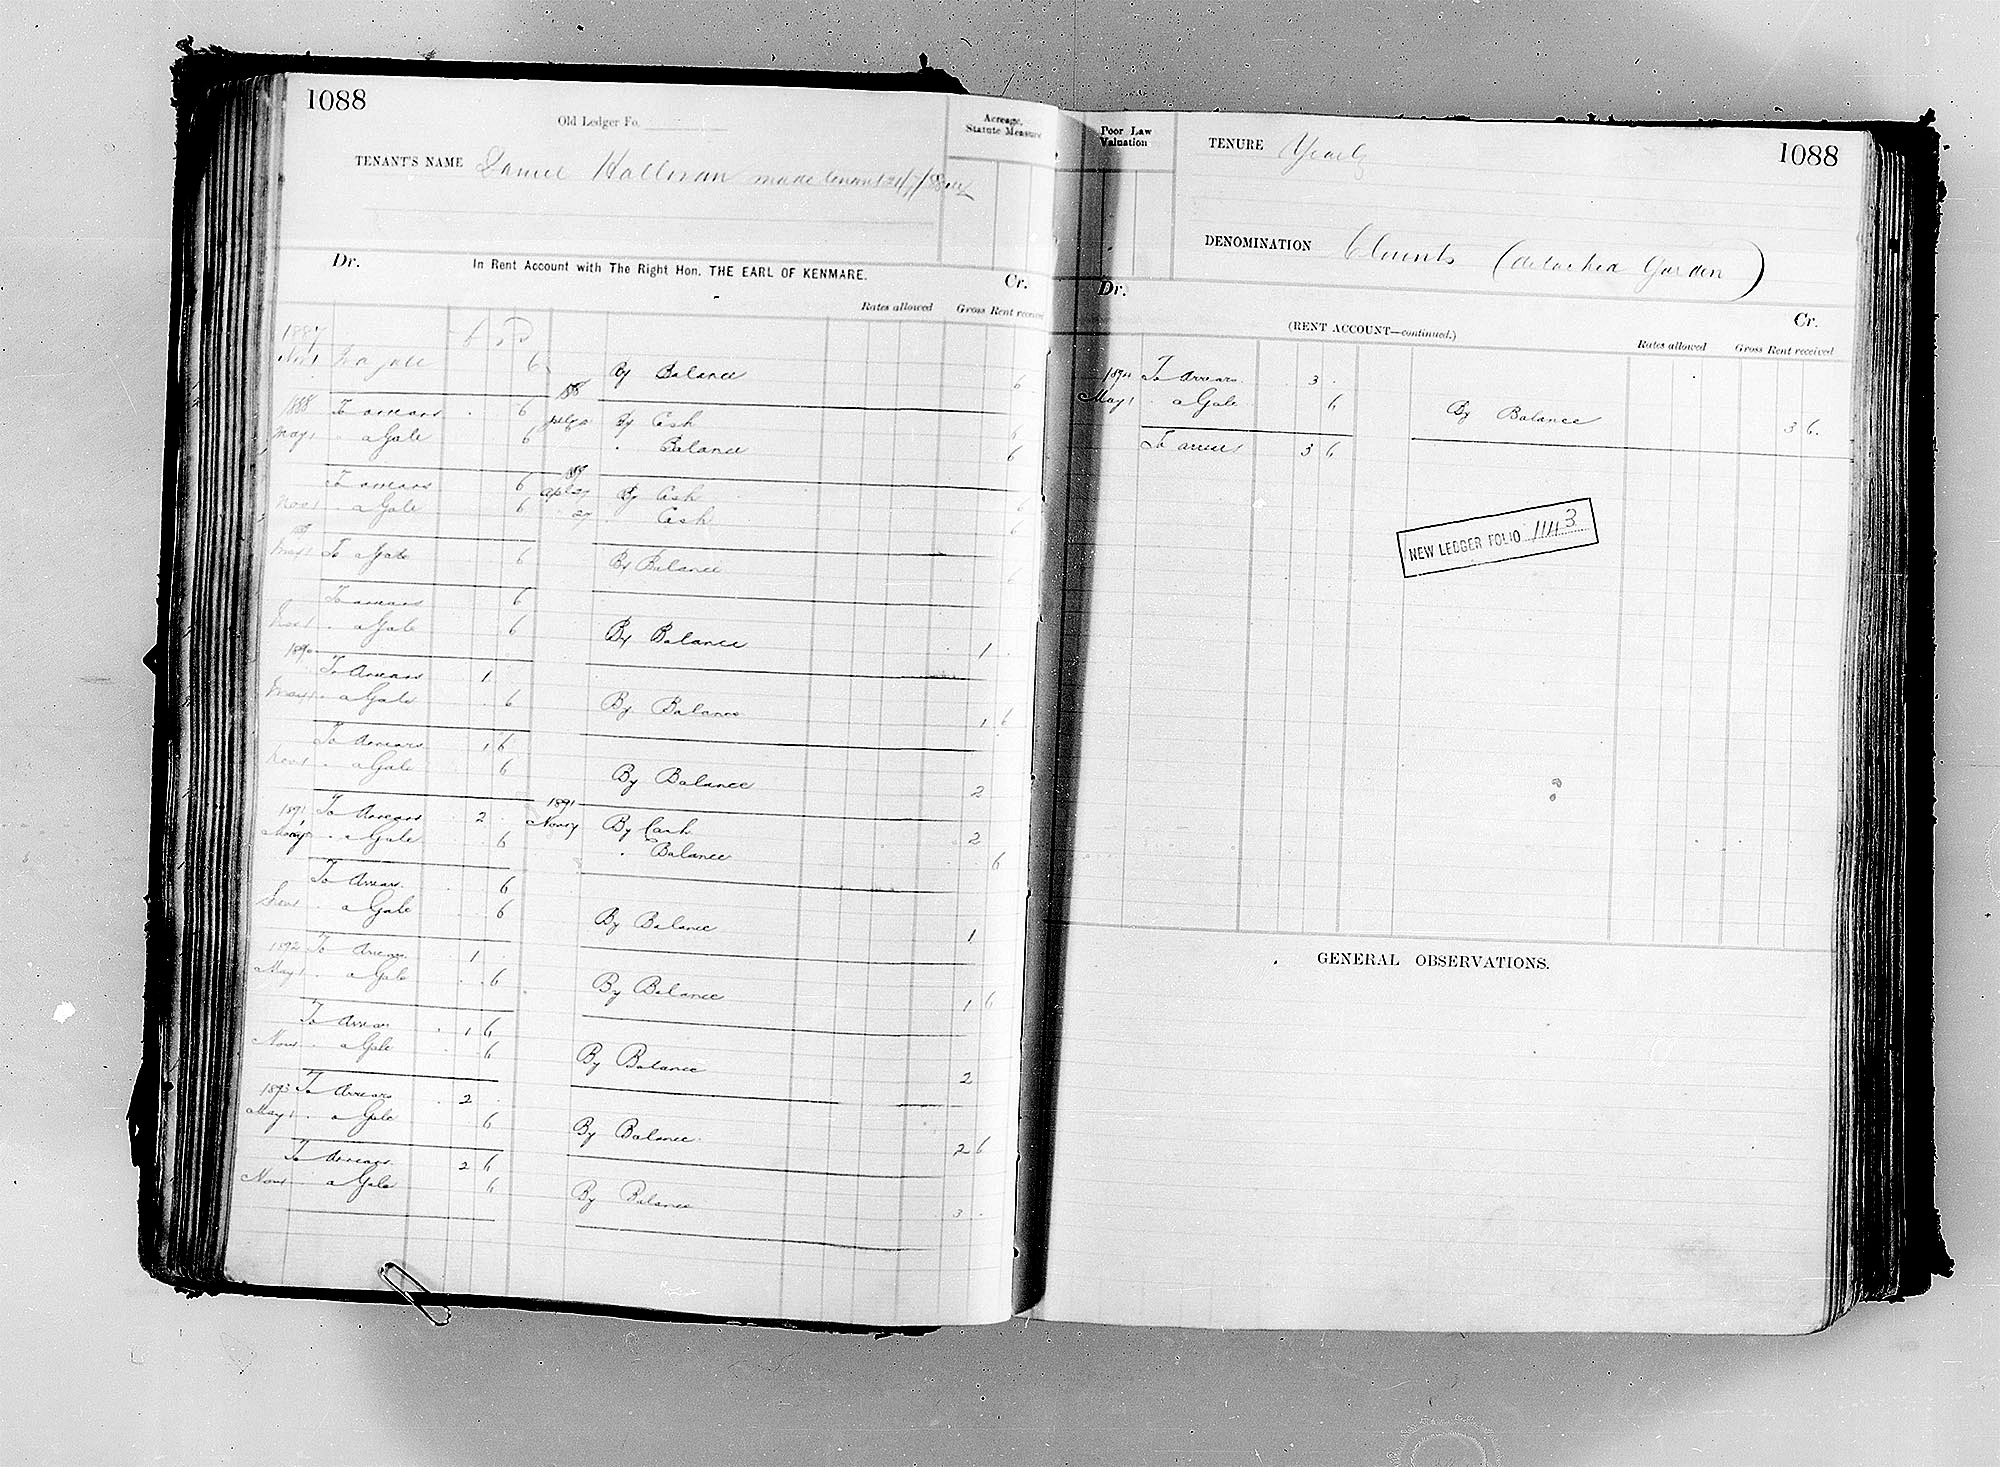 1088
Old Ledger Fo.
Acreage, Statute Measure
TENANT'S NAME Daniel Halloran made tenant
Dr. In Rent Account with The Right Hon. THE EARL OF KENMARE. Cr.
Rates allowed Gross Rent received
1887
Nov 1 a Gale 6 By Balance 6
1888 To arrears 6 By Cash 6
May 1 " a Gale 6 " Balance 6
To arrears 6 Apl 27 By Cash 6
Nov 1 " a Gale 6 27 " Cash 6
May 1 To a Gale 6 By Balance 6
To arrears 6
Nov 1 " a Gale 6 By Balance 1
1890 To Arrears 1
May 1 " a Gale 6 By Balance 1 6
To Arrears 1 6
Nov 1 " a Gale 6 By Balance 2
1891 To Arrears 2 1891 Nov 17 By Cash 2
May 1 " a Gale 6 " Balance 6
To Arrears 6
Nov 1 " a Gale 6 By Balance 1
1892 To Arrears 1
May 1 " a Gale 6 By Balance 1 6
To Arrears 1 6
Nov 1 " a Gale 6 By Balance 2
1893 To Arrears 2
May 1 " a Gale 6 By Balance 2 6
To Arrears 2 6
Nov 1 " a Gale 6 By Balance 3
Poor Law Valuation
TENURE Yearly
1088
DENOMINATION (detached Garden)
Dr. (RENT ACCOUNT—continued.) Cr.
Rates allowed Gross Rent received
1894 To Arrears 3
May 1 " a Gale 6 By Balance 3 6
To arrears 3 6
NEW LEDGER FOLIO 1143
GENERAL OBSERVATIONS.